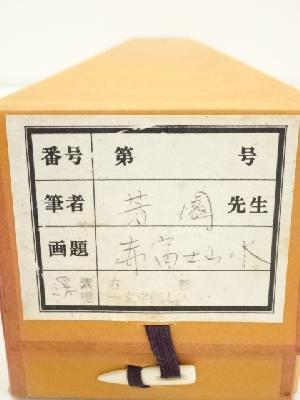 番号 第 号
筆者 芳園 先生
画題 赤富士山水